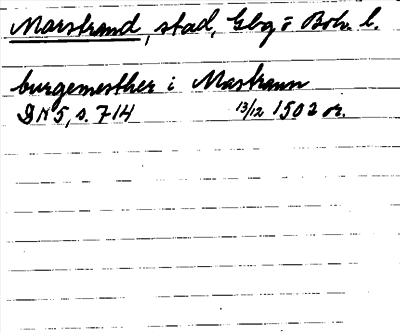 Marstrand, stad, Gbg o Boh. l.
burgemesther i Mastraun
DN 5, s. 714 13/12 1502 or.